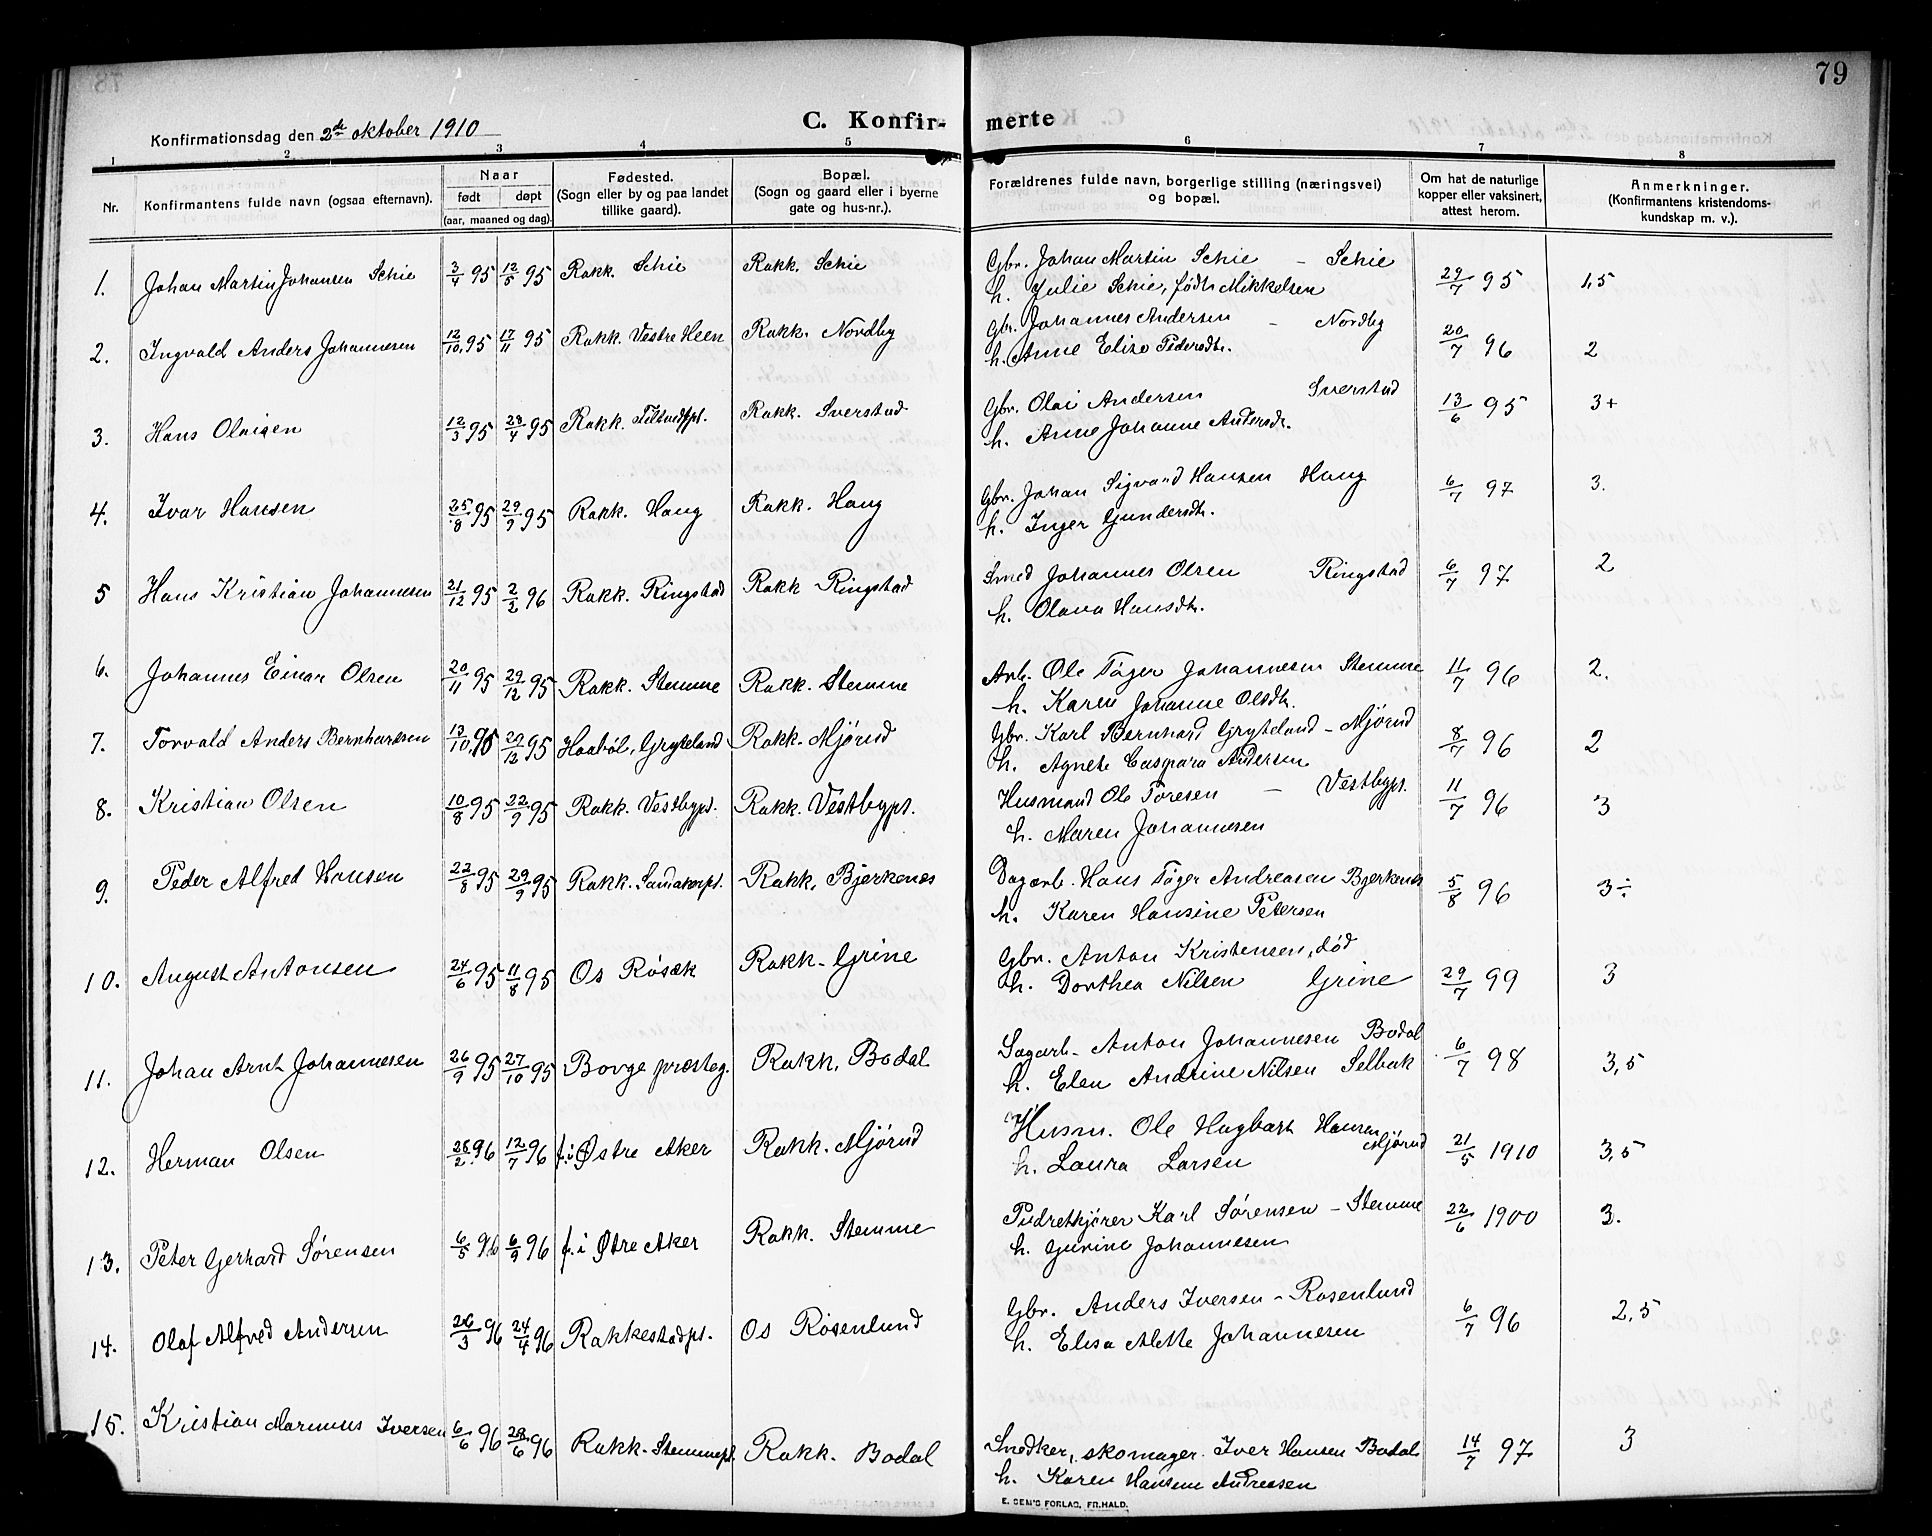 79
Konfirmationsdag den 2de oktober 1910
C. Konfir- merte
1 2 3 4 5 6 7 8
Nr.
Konfirmantens fulde navn (ogsaa efternavn).
Naar
født døpt
(aar, maaned og dag).
Fødested.
(Sogn eller by og paa landet
tillike gaard).
Bopæl.
(Sogn og gaard eller i byerne
gate og hus-nr.).
Forældrenes fulde navn, borgerlige stilling (næringsvei)
og bopæl.
Om hat de naturlige
kopper eller vaksinert,
attest herom.
Anmerkninger.
(Konfirmantens kristendoms-
kundskap m. v.).
1. Johan Martin Johansen Schie 3/4 95 12/5 95 Rakk. Schie Rakk. Schie Gbr. Johan Martin Schie – Schie 29/7 95 1,5
h. Julie Schie, født Mikkelsen
2. Ingvald Anders Johannesen 12/10 95 17/11 95 Rakk. Vestre Heen Rakk. Nordby Gbr. Johannes Andersen – Nordby 20/7 96 2
h. Anne Elise Pedersdtr.
3. Hans Olaisen 12/3 95 28/4 95 Rakk. Rakk. Sverstad Gbr. Olai Andersen Sverstad 13/6 95 3+
h. Anne Johanne Andersdtr.
4. Ivar Hansen 25/8 95 29/9 95 Rakk. Haug Rakk. Haug Gbr. Johan Sigvard Hansen Haug 6/7 97 3.
h. Inger Gundersdtr.
5 Hans Kristian Johannesen 21/12 95 2/2 96 Rakk. Ringstad Rakk Ringstad Smed Johannes Olsen Ringstad 6/7 97 2
h. Olava Hansdtr.
6. Johannes Einar Olsen 20/11 95 29/12 95 Rakk. Stemme Rakk. Stemme Arb. Ole Tøger Johannesen Stemme 11/7 96 2.
h. Karen Johanne Olsdtr.
7. Torvald Anders Bernhardsen 13/10 95 29/12 95 Haabøl, Gryteland Rakk. Mjørud Gbr. Karl Bernhard Gryteland – Mjørud 8/7 96 2
h. Agnete Caspara Andersen
8. Kristian Olsen 10/8 95 22/9 95 Rakk. Vestbypl. Rakk. Vestbypl. Husmand Ole Toresen – Vestbypl. 11/7 96 3
h. Maren Johannesen
9. Peder Alfred Hansen 22/8 95 29/9 95 Rakk. Sandakerpl. Rakk. Bjerkenes Dagarb. Hans Tøger Andreasen Bjerkenes 5/8 96 3÷
h. Karen Hansine Petersen
10. August Antonsen 24/6 95 11/8 95 Os Røsæk Rakk. Grine Gbr. Anton Kristensen, død
h. Dorthea Nilsen Grine 29/7 99 3
11. Johan Arnt Johannesen 26/9 95 27/10 95 Borge præsteg. Rakk. Bodal Sagarb. Anton Johannesen Bodal 6/7 98 3,5
h. Elen Andrine Nilsen Selbak
12. Herman Olsen 28/2 96 12/7 96 f. i Østre Aker Rakk. Mjørud Husm. Ole Hagbart Hansen Mjørud 21/5 1910 3,5
h. Laura Larsen
13. Peter Gerhard Sørensen 6/5 96 6/9 96 f. i Østre Aker Rakk. Stemme Pudretkjører Karl Sørensen – Stemme 22/6 1900 3.
h. Gurine Johannesen
14. Olaf Alfred Andersen 26/3 96 24/4 96 Rakkestadpl. Os Rosenlund Gbr. Anders Iversen – Rosenlund 6/7 96 2,5
h. Elisa Alette Johannesen
15. Kristian Marinius Iversen 6/6 96 28/6 96 Rakk. Stemmepl. Rakk. Bodal Snedker, skomager. Iver Hansen Bodal 14/7 97 3
h. Karen Hansine Andreasen
E. SEM'S FORLAG, FR.HALD.